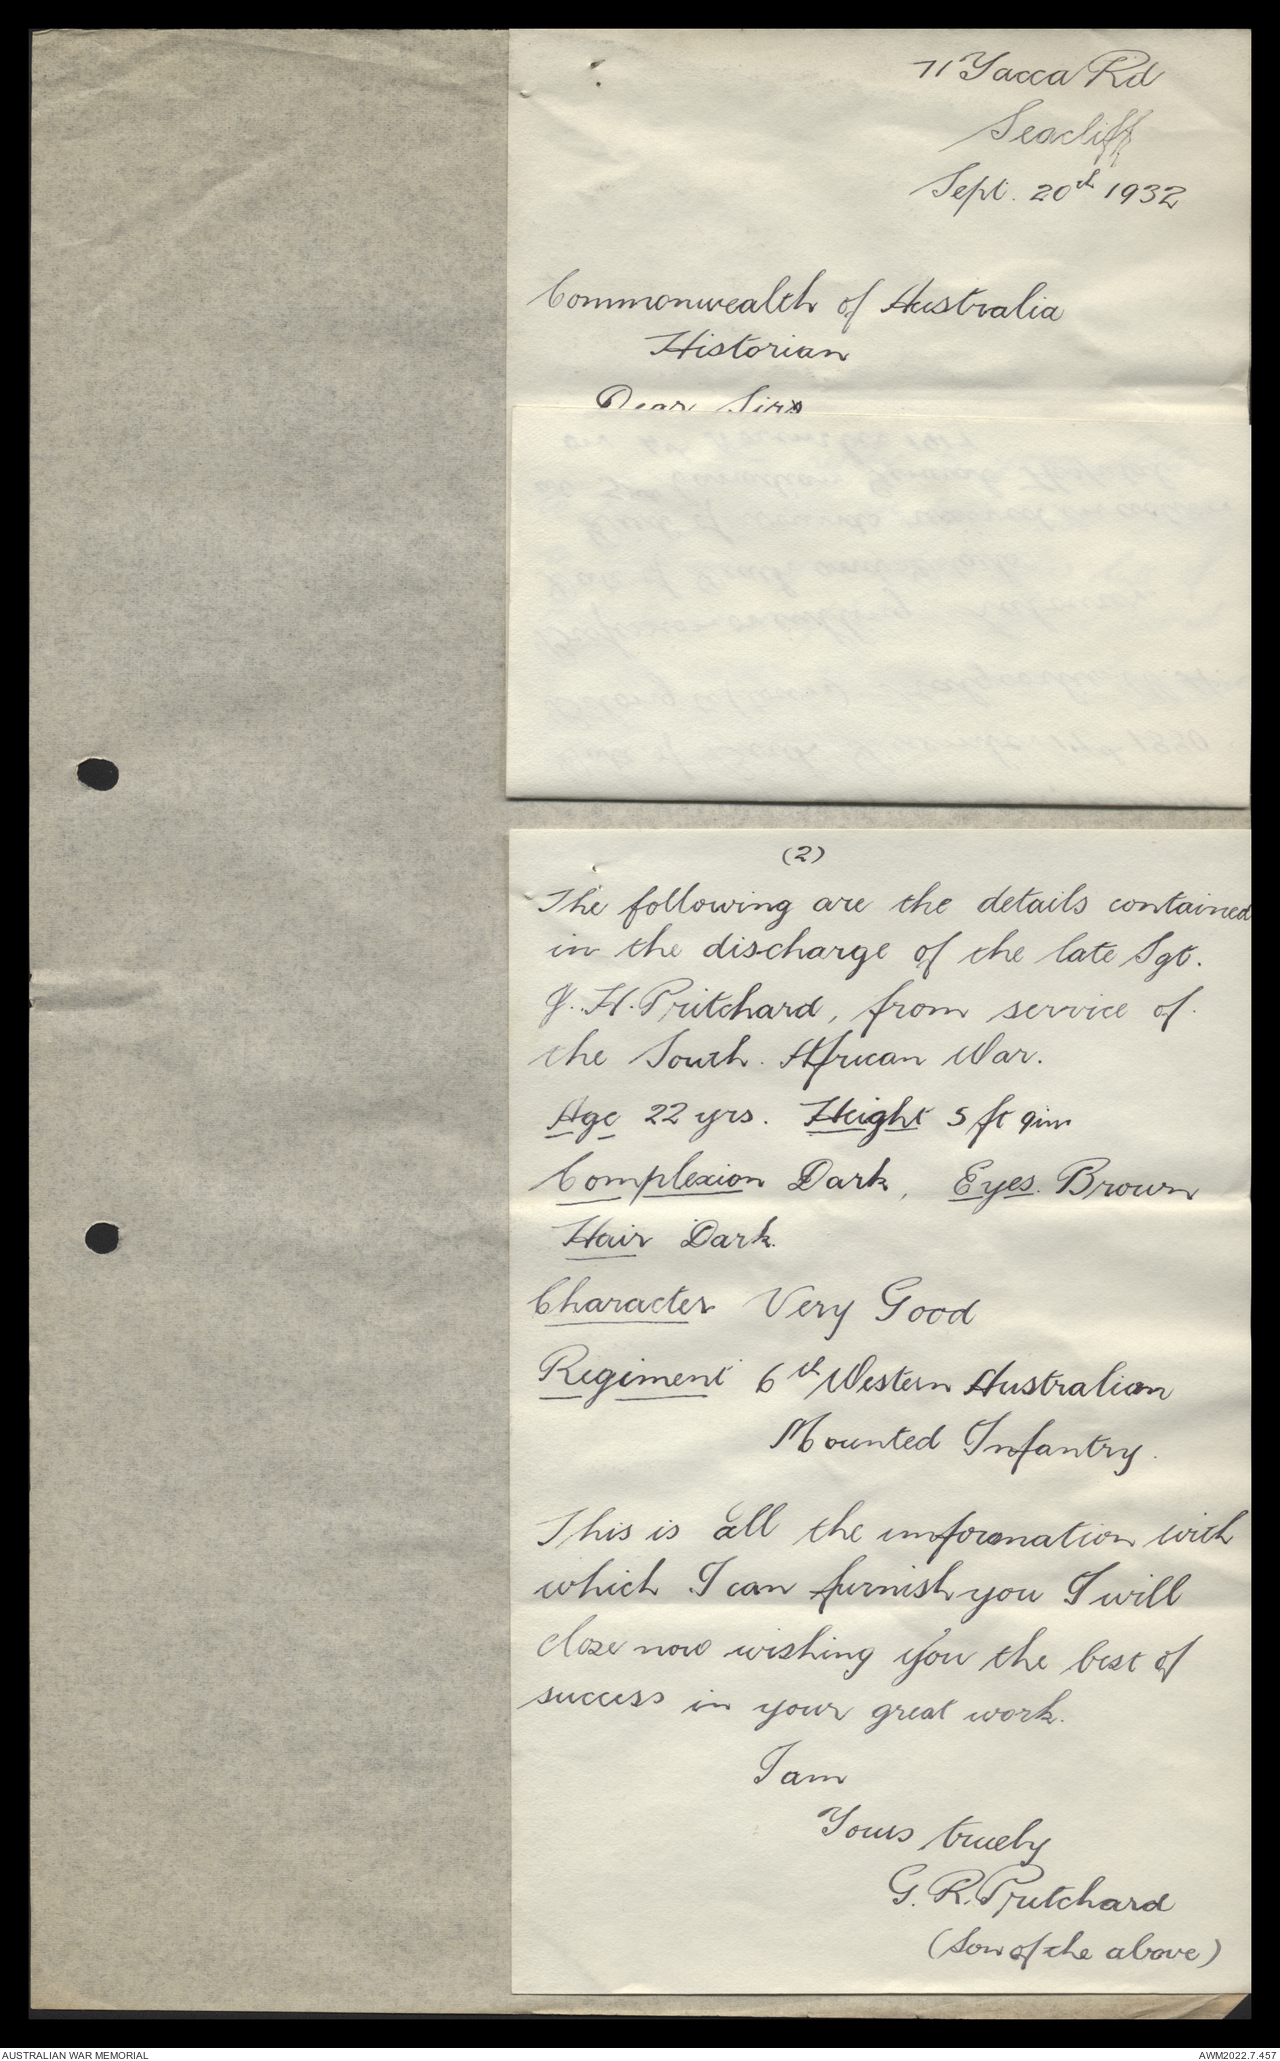 71 Yacca Rd
Seacliff
Sept. 20th 1932
Commonwealth of Australia
Historian
Dear Sirs
(2)
The following are the details contained
in the discharge of the late Sgt.
J. H. Pritchard, from service of
the South African War.
Age 22 yrs. Height 5 ft 9in
Complexion Dark, Eyes Brown
Hair Dark.
Character Very Good
Regiment 6th Western Australian
Mounted Infantry.
This is all the imformation with
which I can furnish you I will
close now wishing you the best of
success in your great work.
I am
Yours truely
G. R. Pritchard
(Son of the above)
AUSTRALIAN WAR MEMORIAL
AWM2022.7.457